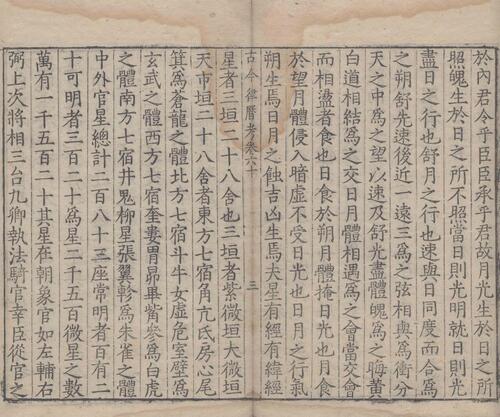 於內君令乎臣臣承乎君故月光生於日之所
照魄生於日之所不照當日則光明就日則光
盡日之行也舒月之行也速與日同度而合爲
之朔舒先速後近一遠三爲之弦相與爲衡分
天之中爲之望以速及舒光盡體魄爲之晦黃
白道相結爲之交日月體相遇爲之會當交會
而相盪者食也日食於朔月體掩日光也月食
於望月體侵入暗虛不受日光也日月之行氣
朔生焉日月之蝕吉凶生焉夫星有經有緯經
古今律曆考卷六十 三
星者三垣二十八舍也三垣者紫微垣大微垣
天市垣二十八舍者東方七宿角亢氐房心尾
箕爲蒼龍之體北方七宿斗牛女虛危室壁爲
玄武之體西方七宿奎婁胃昴畢觜參爲白虎
之體南方七宿井鬼柳星張翼軫爲朱雀之體
中外官星總計二百八十三座常明者百有二
十可明者三百二十爲星二千五百微星之數
萬有一千五百二十其星在朝象官如左輔右
弼上次將相三台九卿執法騎官幸臣從官之